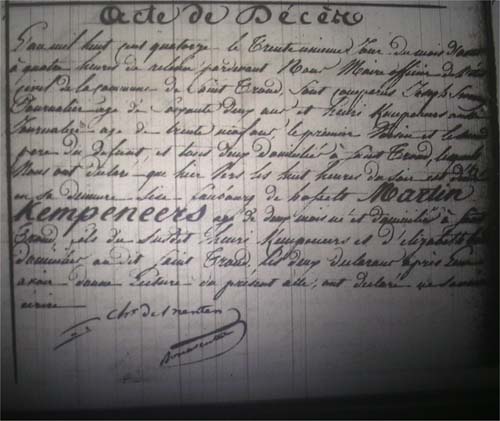 Acte de Décès
L'an mil huit cent quatorze le Trente unieme Jour du mois d'aout
à quatre heures de relevée pardevant Nous Maire officier de l'état
civil de la commune de Saint Trond, sont comparus Joseph
Journalier agé de soixante deux ans et henri Kempeneers
Journalier agé de trente neuf ans, le premier Voisin et le second
pere du defunt, et tous deux domicilié à Saint Trond, lesquels
Nous ont declaré que hier vers les huit heures du soir est
en sa demeure sise fauxbourg de hasselt Martin
Kempeneers agé de deux mois né et domicilié à Saint
Trond, fils du susdit henri Kempeneers et d'elizabeth
domiciliés au dit Saint Trond, les deux declarans après
avoir donné Lecture du présent acte, ont declaré ne savoir
ecrire